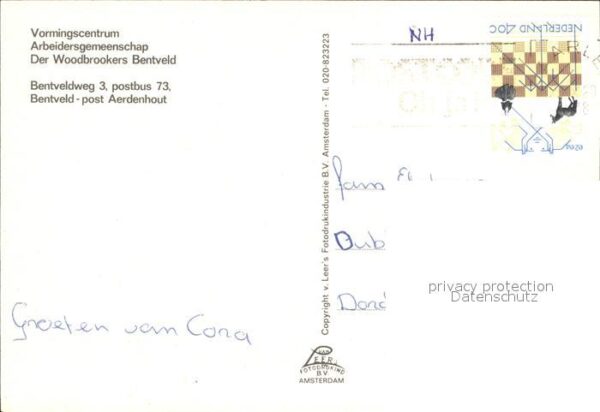 Vormingscentrum
Arbeidersgemeenschap
Der Woodbrookers Bentveld
Bentveldweg 3, postbus 73,
Bentveld - post Aerdenhout
Groeten van Cora
Copyright v. Leer's Fotodrukindustrie B.V. Amsterdam - Tel. 020-823223
VAN
LEER
FOTODRUKIND
B.V
AMSTERDAM
NH
NEDERLAND 40c
Fam
Dub
Dord
privacy protection
Datenschutz